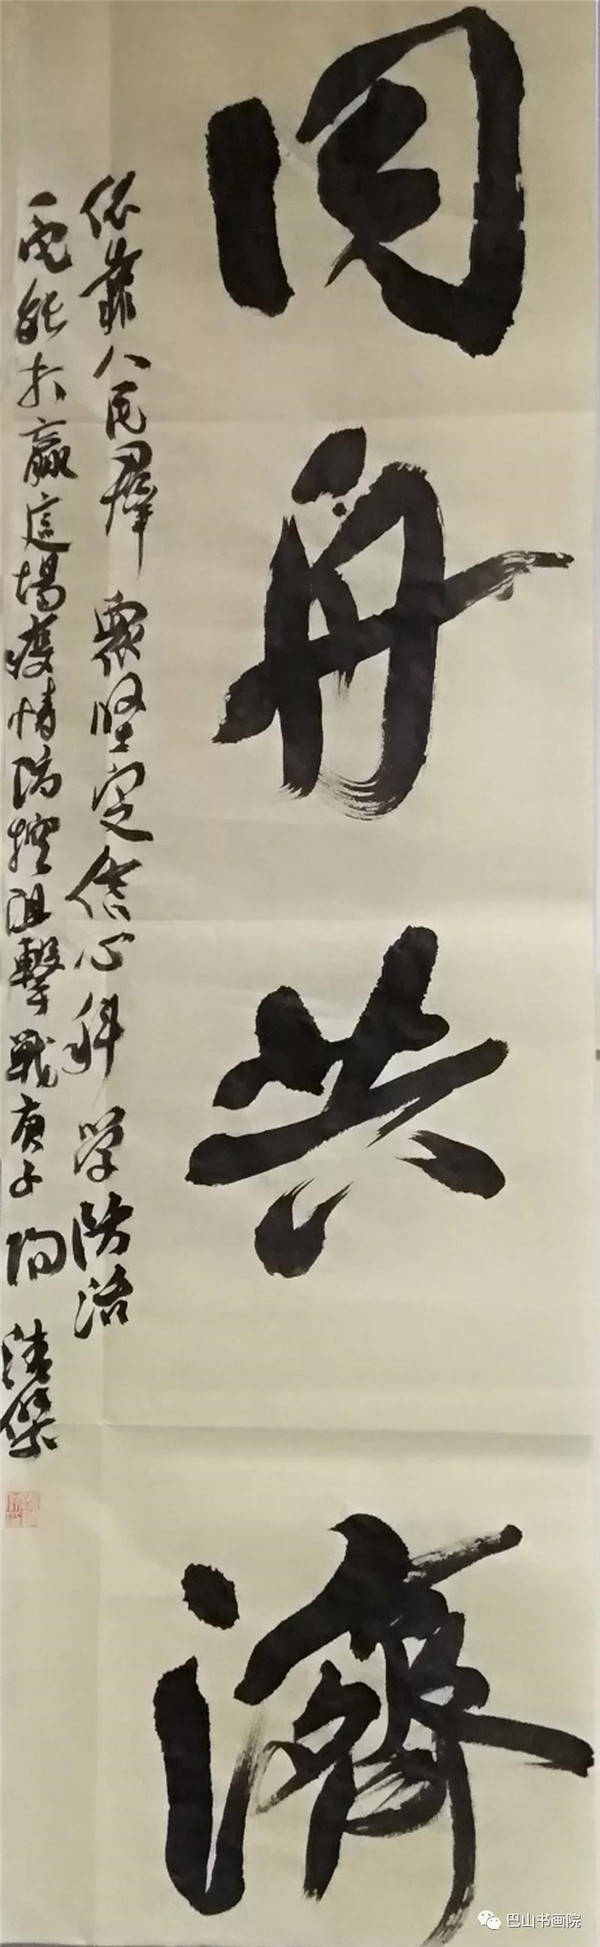 同舟共濟
依靠人民群眾堅定信心科学防治
一定能打贏這場疫情防控阻擊戰庚子陶清傑
巴山书画院